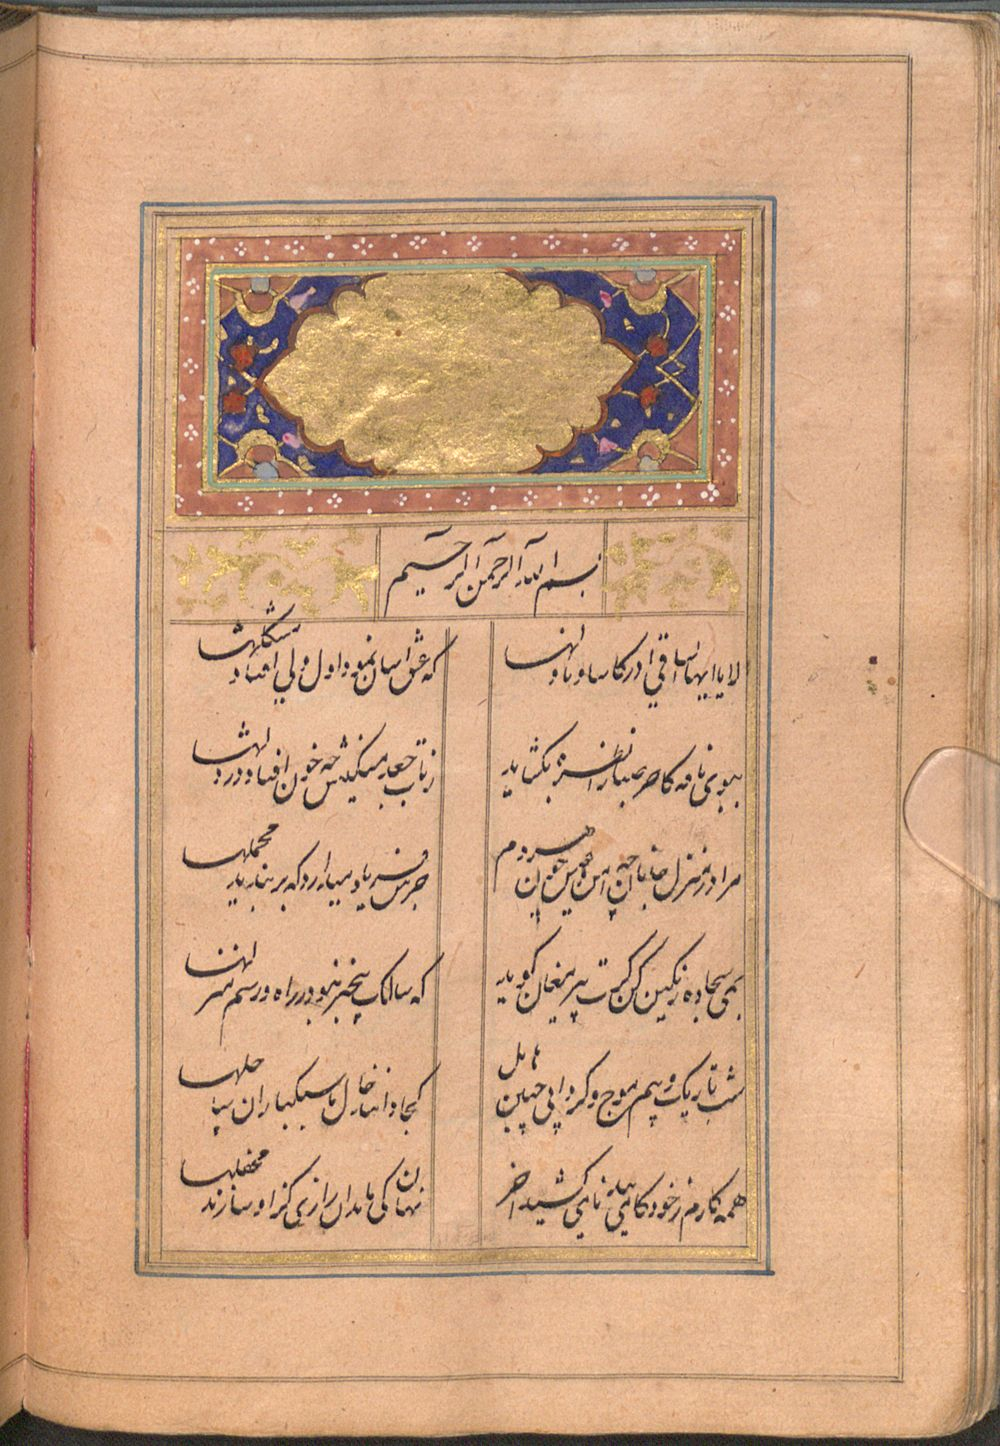 بسم الله الرحمن الرحیم
الایا ایها الساقی ادر کاسا وناولها
که عشق اسان نمود اول ولی افتاد مشکلها
ببوی نافه کاخر صبا زان طره بکشاید
زتاب جعد مشکینش چه خون افتاد در دلها
مرا در منزل جانان چه امن عیش چون هر دم
جرس فریاد میدارد که بر بندید محملها
بمی سجاده رنگین کن کرت پیر مغان کوید
که سالک بیخبر نبود ز راه و رسم منزلها
شب تاریک و بیم موج و کردابی چنین هایل
کجا دانند حال ما سبکباران ساحلها
همه کارم ز خود کامی به بدنامی کشید اخر
نهان کی ماند ان رازی کزو سازند محفلها